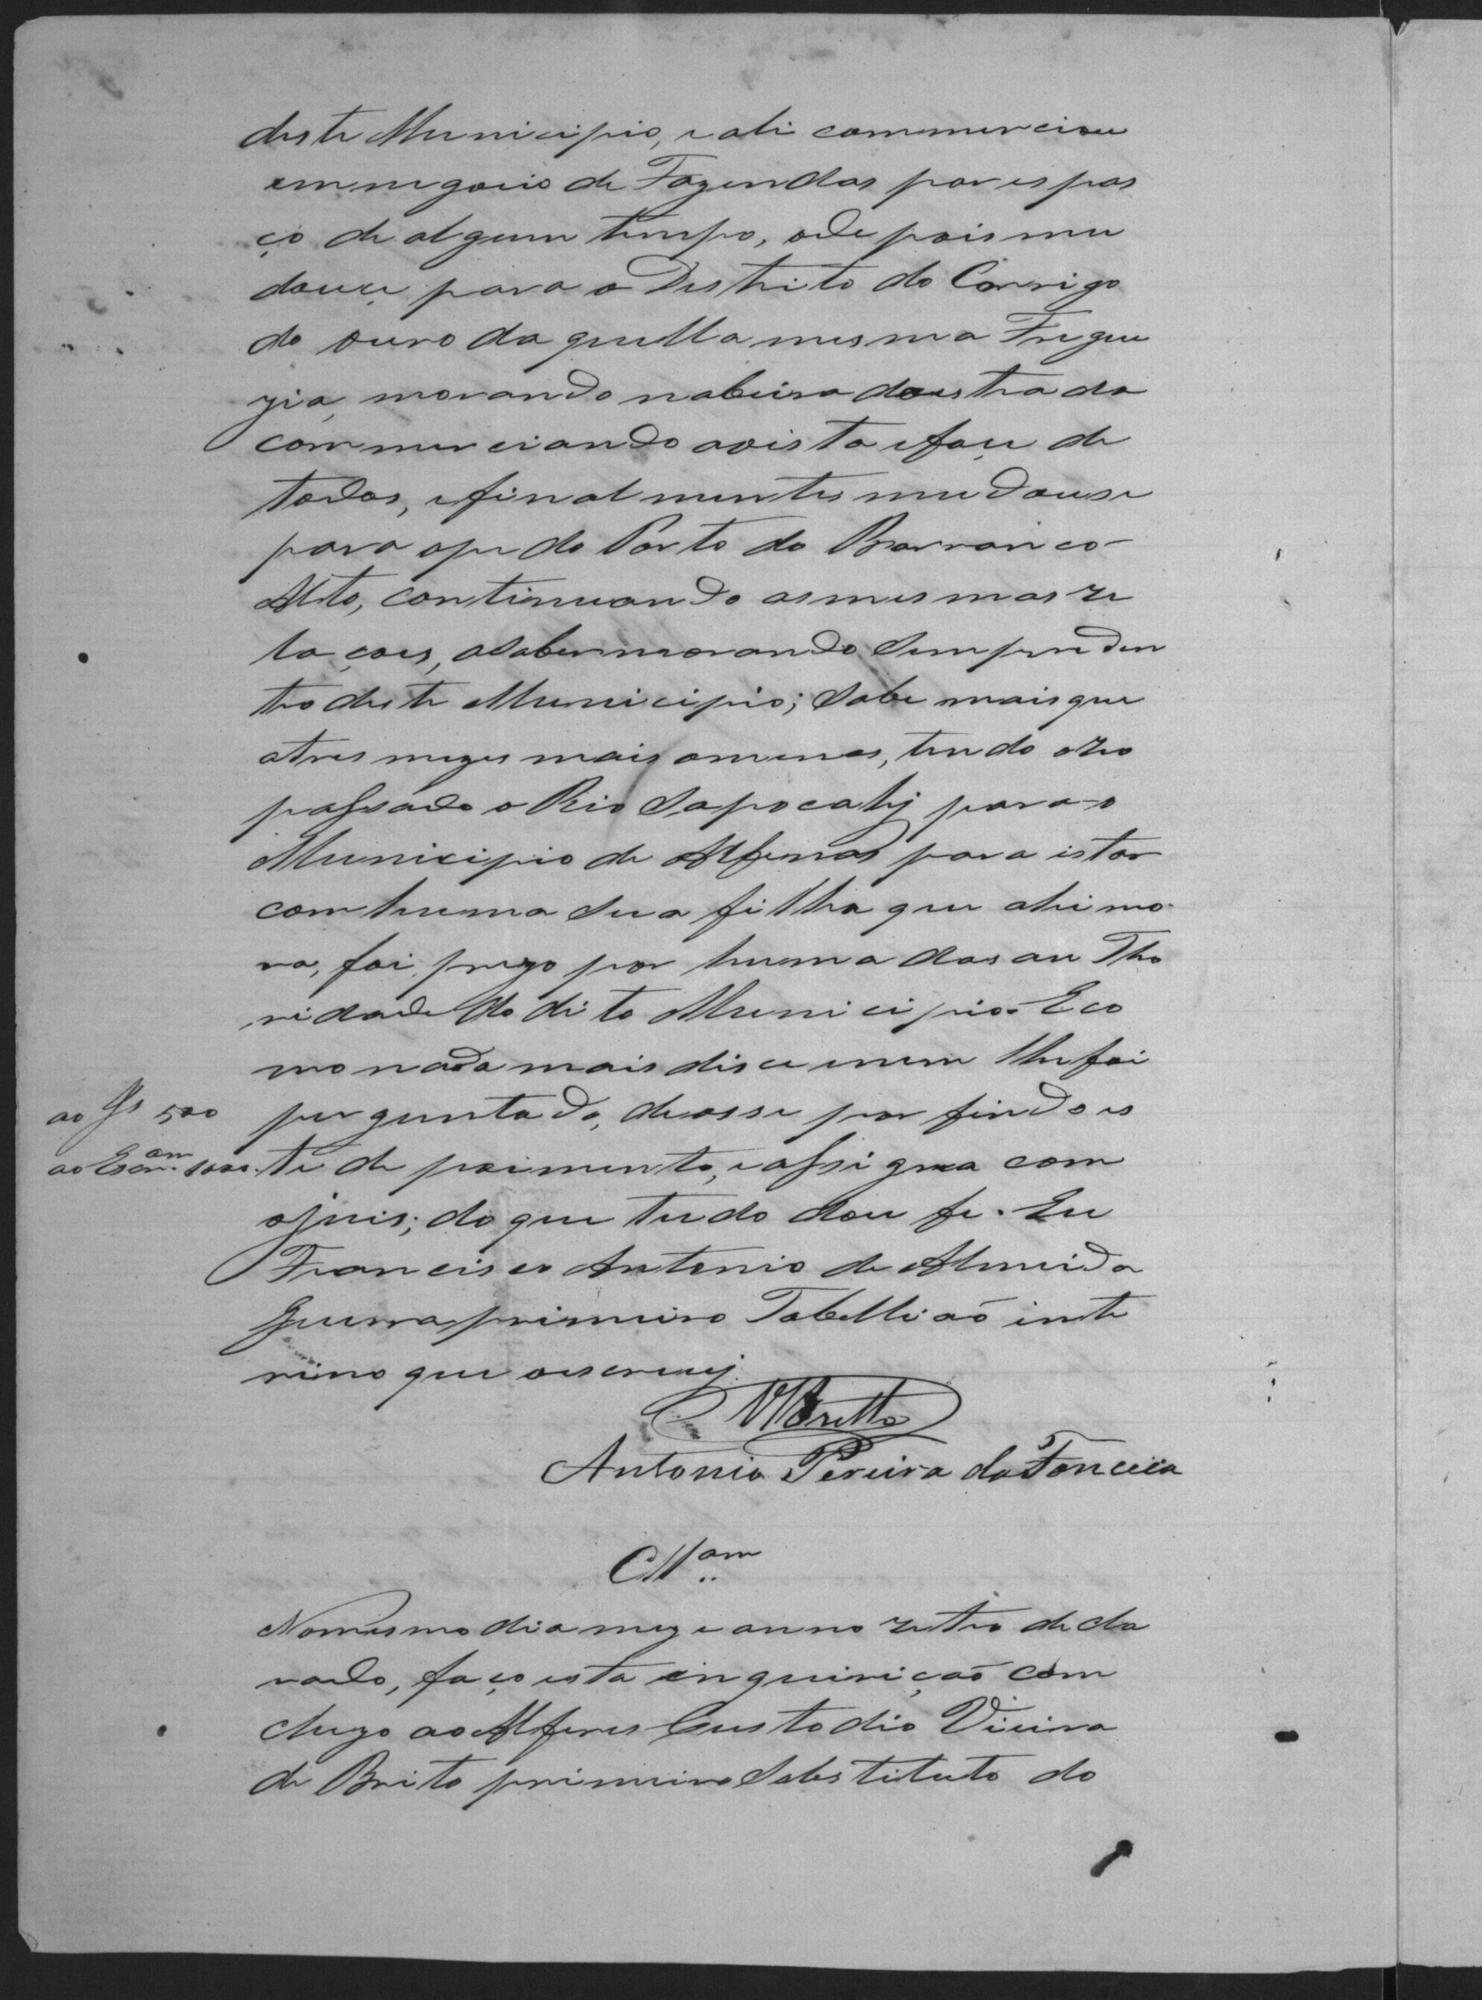 deste Municipio, e ali commerciou
em negocio de Fazendas por espas
ço de algum tempo, e depois mu
douce para o Destrito do Corrigo
do ouro da quella mesma Fregue
zia, morando na beira da estrada
commerciando a vista e face de
todos, e final mentes mudouse
para o pe do Porto do Barranco
Alto, continuando as mesmas re
laçoes, a saber morando sempre den
tro deste Municipio; sabe mais que
a tres mezes mais o menos, tendo o reo
passado o Rio Sapocahy para o
Municipio de Alfenas para estar
com huma sua filha que ahi mo
ra, foi prezo por huma das au tho
ridade do dito Municipio. E co
mo nada mais disce e nem lhe foi
ao Js 500 perguntado, deosse por findo es
ao Escram. 1000. te de poimento, e assigna com
o juis; do que tudo dou fe. Eu
Francisco Antonio de Almeida
Guerra primeiro Tabelliaõ inte
rino que o escrevij.
VBritto
Antonio Pereira da Fonceca
Cllam
No mesmo dia mez e anno retro decla
rado, faço esta inquiriçaõ com
cluzo ao Alferes Custodio Vieira
de Brito primeiro Substituto do